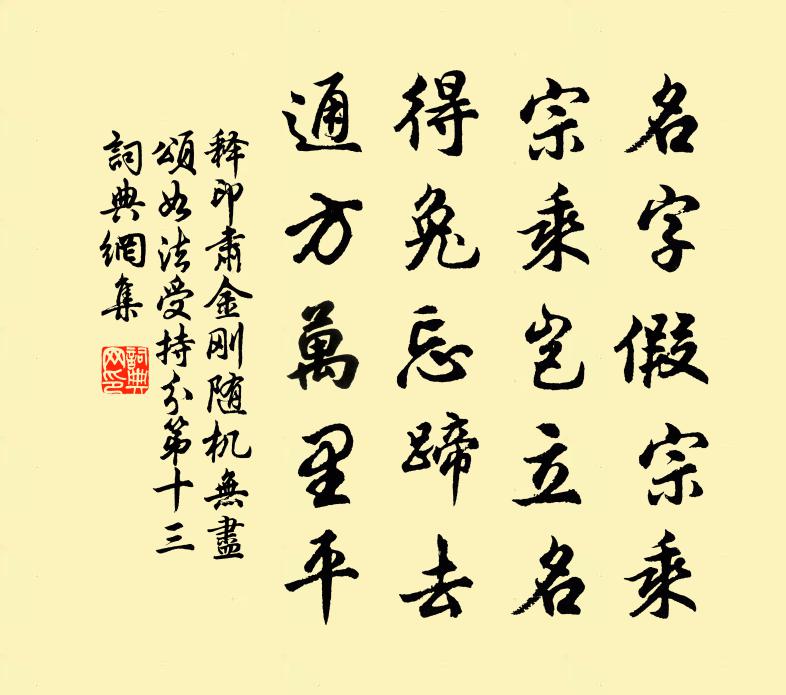 名字假宗乘
宗乘岂立名
得兔忘蹄去
通方萬里平
释印肃金刚随机無盡
頌如法受持分第十三
詞典網集
詞典网印